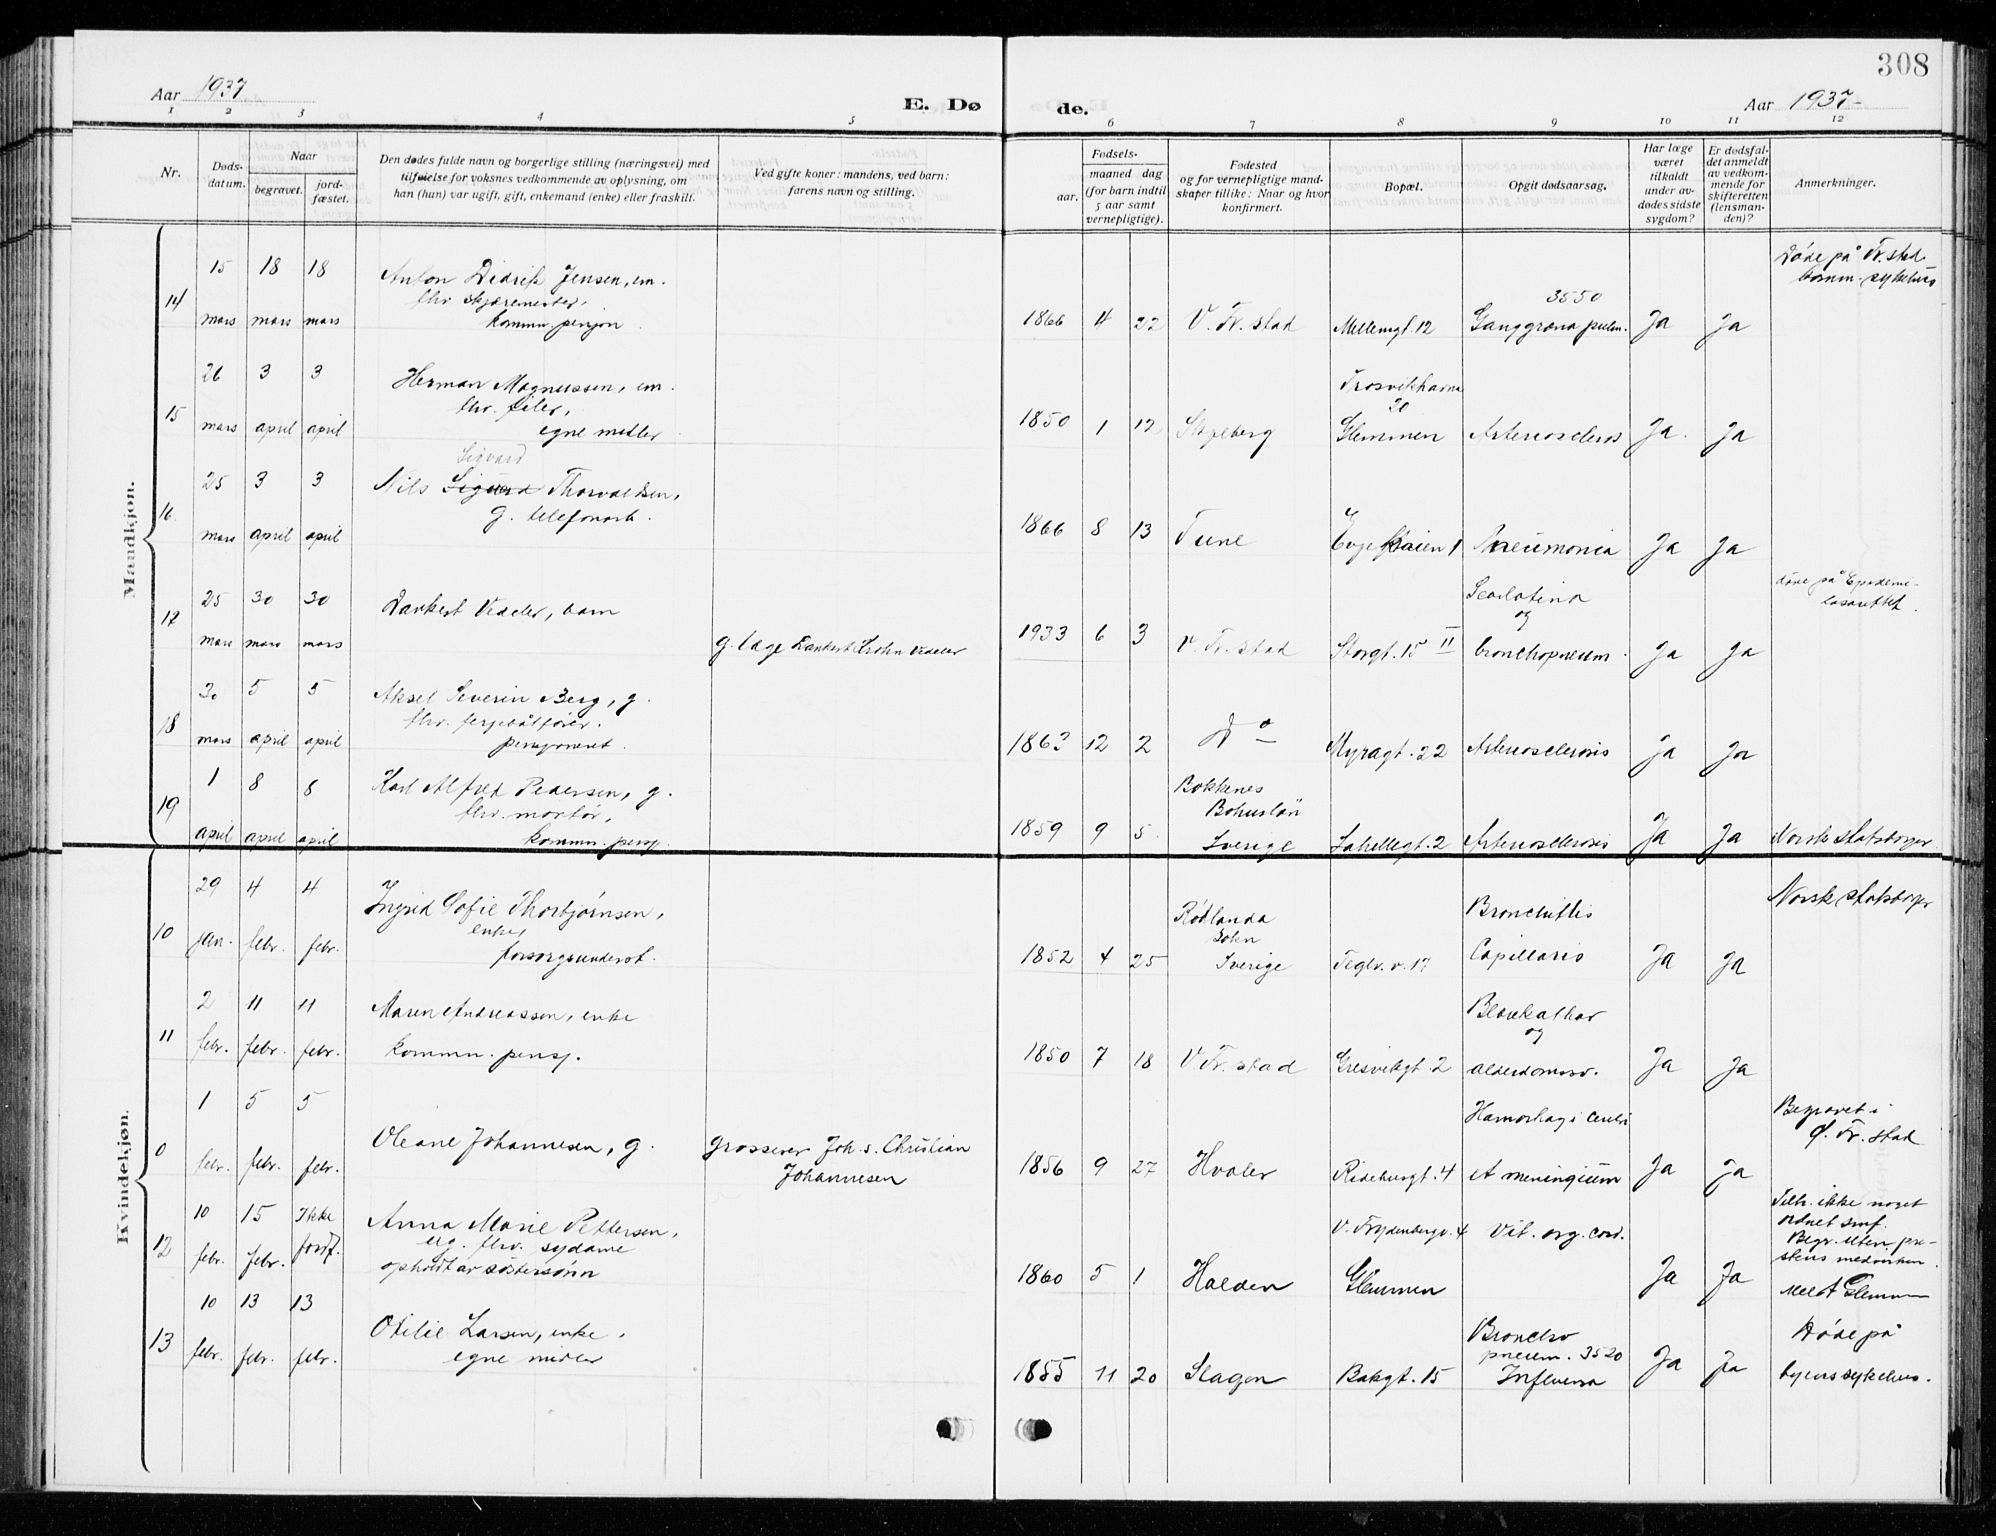 308
Aar 1937
E. Dø
de.
Aar 1937-
1 2 3 4 5 6 7 8 9 10 11 12
Nr.
Døds-
datum.
Naar
begravet.
jord-
fæstet.
Den dødes fulde navn og borgerlige stilling (næringsvei) med
tilføielse for voksnes vedkommende av oplysning, om
han (hun) var ugift, gift, enkemand (enke) eller fraskilt.
Ved gifte koner: mandens, ved barn:
farens navn og stilling.
Fødsels-
aar.
maaned dag
(for barn indtil
5 aar samt
vernepligtige).
Fødested
og for vernepligtige mand-
skaper tillike: Naar og hvor
konfirmert.
Bopæl.
Opgit dødsaarsag.
Har læge
været
tilkaldt
under av-
dødes sidste
sygdom?
Er dødsfal-
det anmeldt
av vedkom-
mende for
skifteretten
(lensman-
den)?
Anmerkninger.
Mandkjøn.
14
15 18 18
mars mars mars
Anton Didrik Jensen, em.
fhv. skjæremester,
komm. pensjon
1866 4 22 V. Fr.stad Mellemgt. 12
3550
Ganggræna pulm. Ja Ja
Døde på Fr.stad
komm. sykehus
15
26 3 3
mars april april
Herman Magnussen, em.
fhv. filer,
egne midler
1850 1 12 Skjeberg
Trosvikhavna
20
Glemmen Arterioscleros Ja. Ja
16
25 3 3
mars april april
Sigvard
Nils Sigurd Thorvaldsen,
g. telefonarb.
1866 8 13 Tune Evjekaien 1 Pneumonia Ja Ja
17
25 30 30
mars mars mars
Dankert Vedeler, barn
g. læge Dankert Krohn Vedeler
1933 6 3 V. Fr.stad Storgt. 15 II
Scarlatina
og
bronchopneum. Ja Ja
døde på Epidemi-
lasarettet.
18
30 5 5
mars april april
Aksel Severin Berg, g.
fhv. ferjebåtfører.
pensjoneret.
1863 12 2 Do Myragt. 22 Arteriosclerosis Ja Ja
19
1 8 8
april april april
Karl Alfred Pedersen, g.
fhv. mortør,
kommn. pensj.
1859 9 5
Bokkenes
Bohuslän
Sverige Labellegt. 2 Arteriosclerosis Ja Ja Norsk statsborger
Kvindekjøn.
10
29 4 4
jan. febr. febr.
Ingrid Sofie Thorbjørnsen,
enke,
forsorgsunderst.
1852 4 25
Rödlanda
sokn
Sverige Teglv. v. 17
Bronchittis
Capillaris Ja Ja
Norsk statsborger
11
2 11 11
febr. febr. febr.
Maren Andreassen, enke
kommn. pensj.
1850 7 18 V Fr.stad Gresvikgt. 2
Blærekathar
og
alderdomssv. Ja Ja
0
1 5 5
febr. febr. febr.
Oleane Johannesen, g.
grosserer Joh.s. Christian
Johannesen
1856 9 27 Hvaler Ridehusgt. 4
Hæmorhagi cerebri
et meningium Ja Ja
Begravet i
Ø. Fr.stad
12
10 15 Ikke
febr. febr. jordf.
Anna Marie Pettersen,
ug. fhv. sydame
opholdt av søstersønn
1860 5 1 Halden
V. Frydenbergv. 4
Glemmen
Vit. org. cord. Ja Ja
Tilh. ikke noget
ordnet smf.
Begr. uten pre-
stens medvirken.
Meldt Glemmen
13
10 13 13
febr. febr. febr.
Otilie Larsen, enke,
egne midler
1855 11 20 Slagen Bakgt. 15
Broncho
pneum. 3520
Influensa Ja Ja
Døde på
byens sykehus.